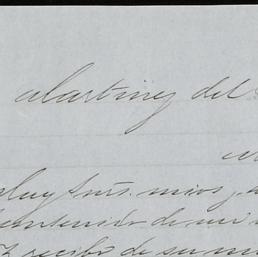 Martinez del
Muy Sres. mios,
contenido de mi
recibo de su